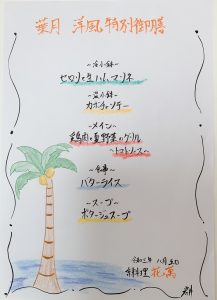 葉月 洋風特別御膳
〜冷小鉢〜
セロリと生ハムマリネ
〜温小鉢〜
カボチャソテー
〜メイン〜
鶏肉と夏野菜のグリル
〜トマトソース〜
〜食事〜
バターライス
〜スープ〜
ポタージュスープ
令和三年 八月五日
料理 花萬